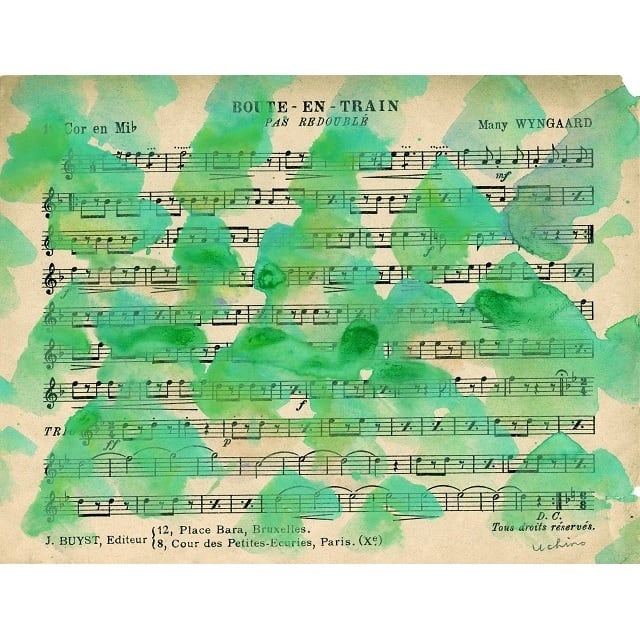 BOUTE-EN-TRAIN
PAS REDOUBLÉ
Cor en Mib
Many WYNGAARD
mf
f
f
f
TRIO
ff
p
D. C.
J. BUYST, Editeur
12, Place Bara, Bruxelles.
8, Cour des Petites-Ecuries, Paris. (Xe)
Tous droits réservés.
uchino